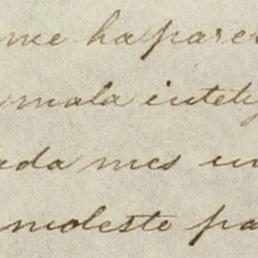 me ha pare
mala inteli
ada mes un
moleste pa